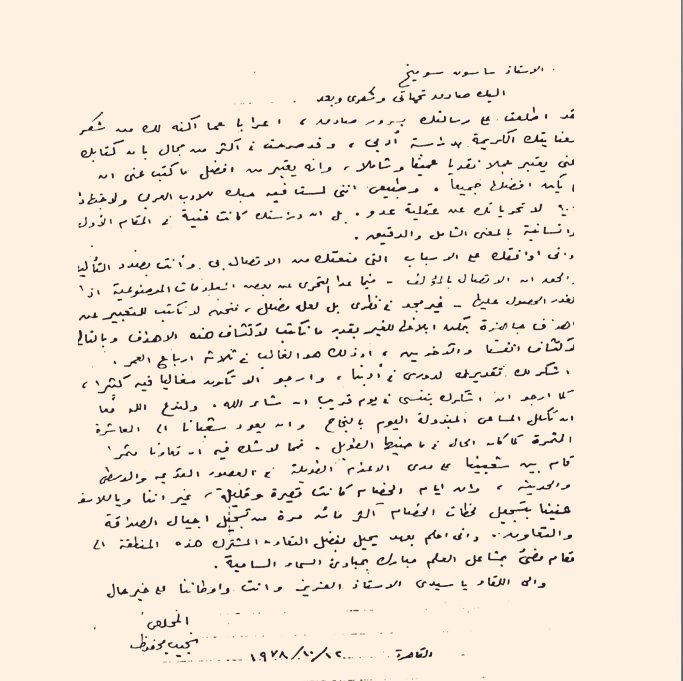 الاستاذ ساسون سوميخ
اليك صادق تحياتي وشكري وبعد
فقد اطلعت على رسالتك بسرور صادق، اعرابا عما أكنه لك من شكر
لعنايتك الكريمة بدراسة أدبي، وقد صرحت في أكثر من مجال بان كتابك
عني يعتبر عملا نقديا عميقا وشاملا، وانه يعتبر من افضل ما كتب عني ان
لم يكن افضلها جميعا. وطبيعي انني لمست فيه حبك للادب العربي ولم
لا تحرياتك عن عقلية عدو. بل ان دراستك كانت فنية في المقام الأول
وانسانية بالمعنى الشامل والدقيق.
واني اوافقك على الاسباب التي منعتك من الاتصال بي وأنت بصدد التأليف
والحق ان الاتصال بالمؤلف - فيما عدا التحري عن بعض المعلومات الموضوعية اذا
تعذر الحصول عليها - غير مجد في نظري بل لعله مضلل، فنحن لا نكتب للتعبير عن
اهداف جاهزة يمكن ابلاغها للغير بقدر ما نكتب لاكتشاف هذه الاهداف وبالتالي
لاكتشاف انفسنا والآخرين، او ذلك هو الغالب في ثلاثة ارباع العمر.
اشكر لك تقديرك لدوري في أدبنا، وارجو الا تكون مغاليا فيه كثيرا،
كما ارجو ان اشكرك بنفسي في يوم قريب ان شاء الله. ولندع الله معا
ان تكلل المساعي المبذولة اليوم بالنجاح وان يعود شعبانا الى العاشرة
المثمرة كما كان الحال في ماضيها الطويل. فمما لا شك فيه ان تعاونا مثمرا
قام بين شعبينا على مدى الاعوام الطويلة في العصور القديمة والوسطى
والحديثة، وان ايام الخصام كانت قصيرة وقليلة، غير اننا وياللاسف
عنينا بتسجيل لحظات الخصام اكثر مائة مرة من تسجيل اجيال الصداقة
والتعاون. واني احلم بعهد يحيل بفضل التعاون المشترك هذه المنطقة الى
مقام مضيء بمشاعل العلم مبارك بمبادئ السماء السامية.
والى اللقاء يا سيدي الاستاذ العزيز وانت واوطاننا على خير حال
المخلص
نجيب محفوظ
القاهرة ١٢/١٠/١٩٧٨